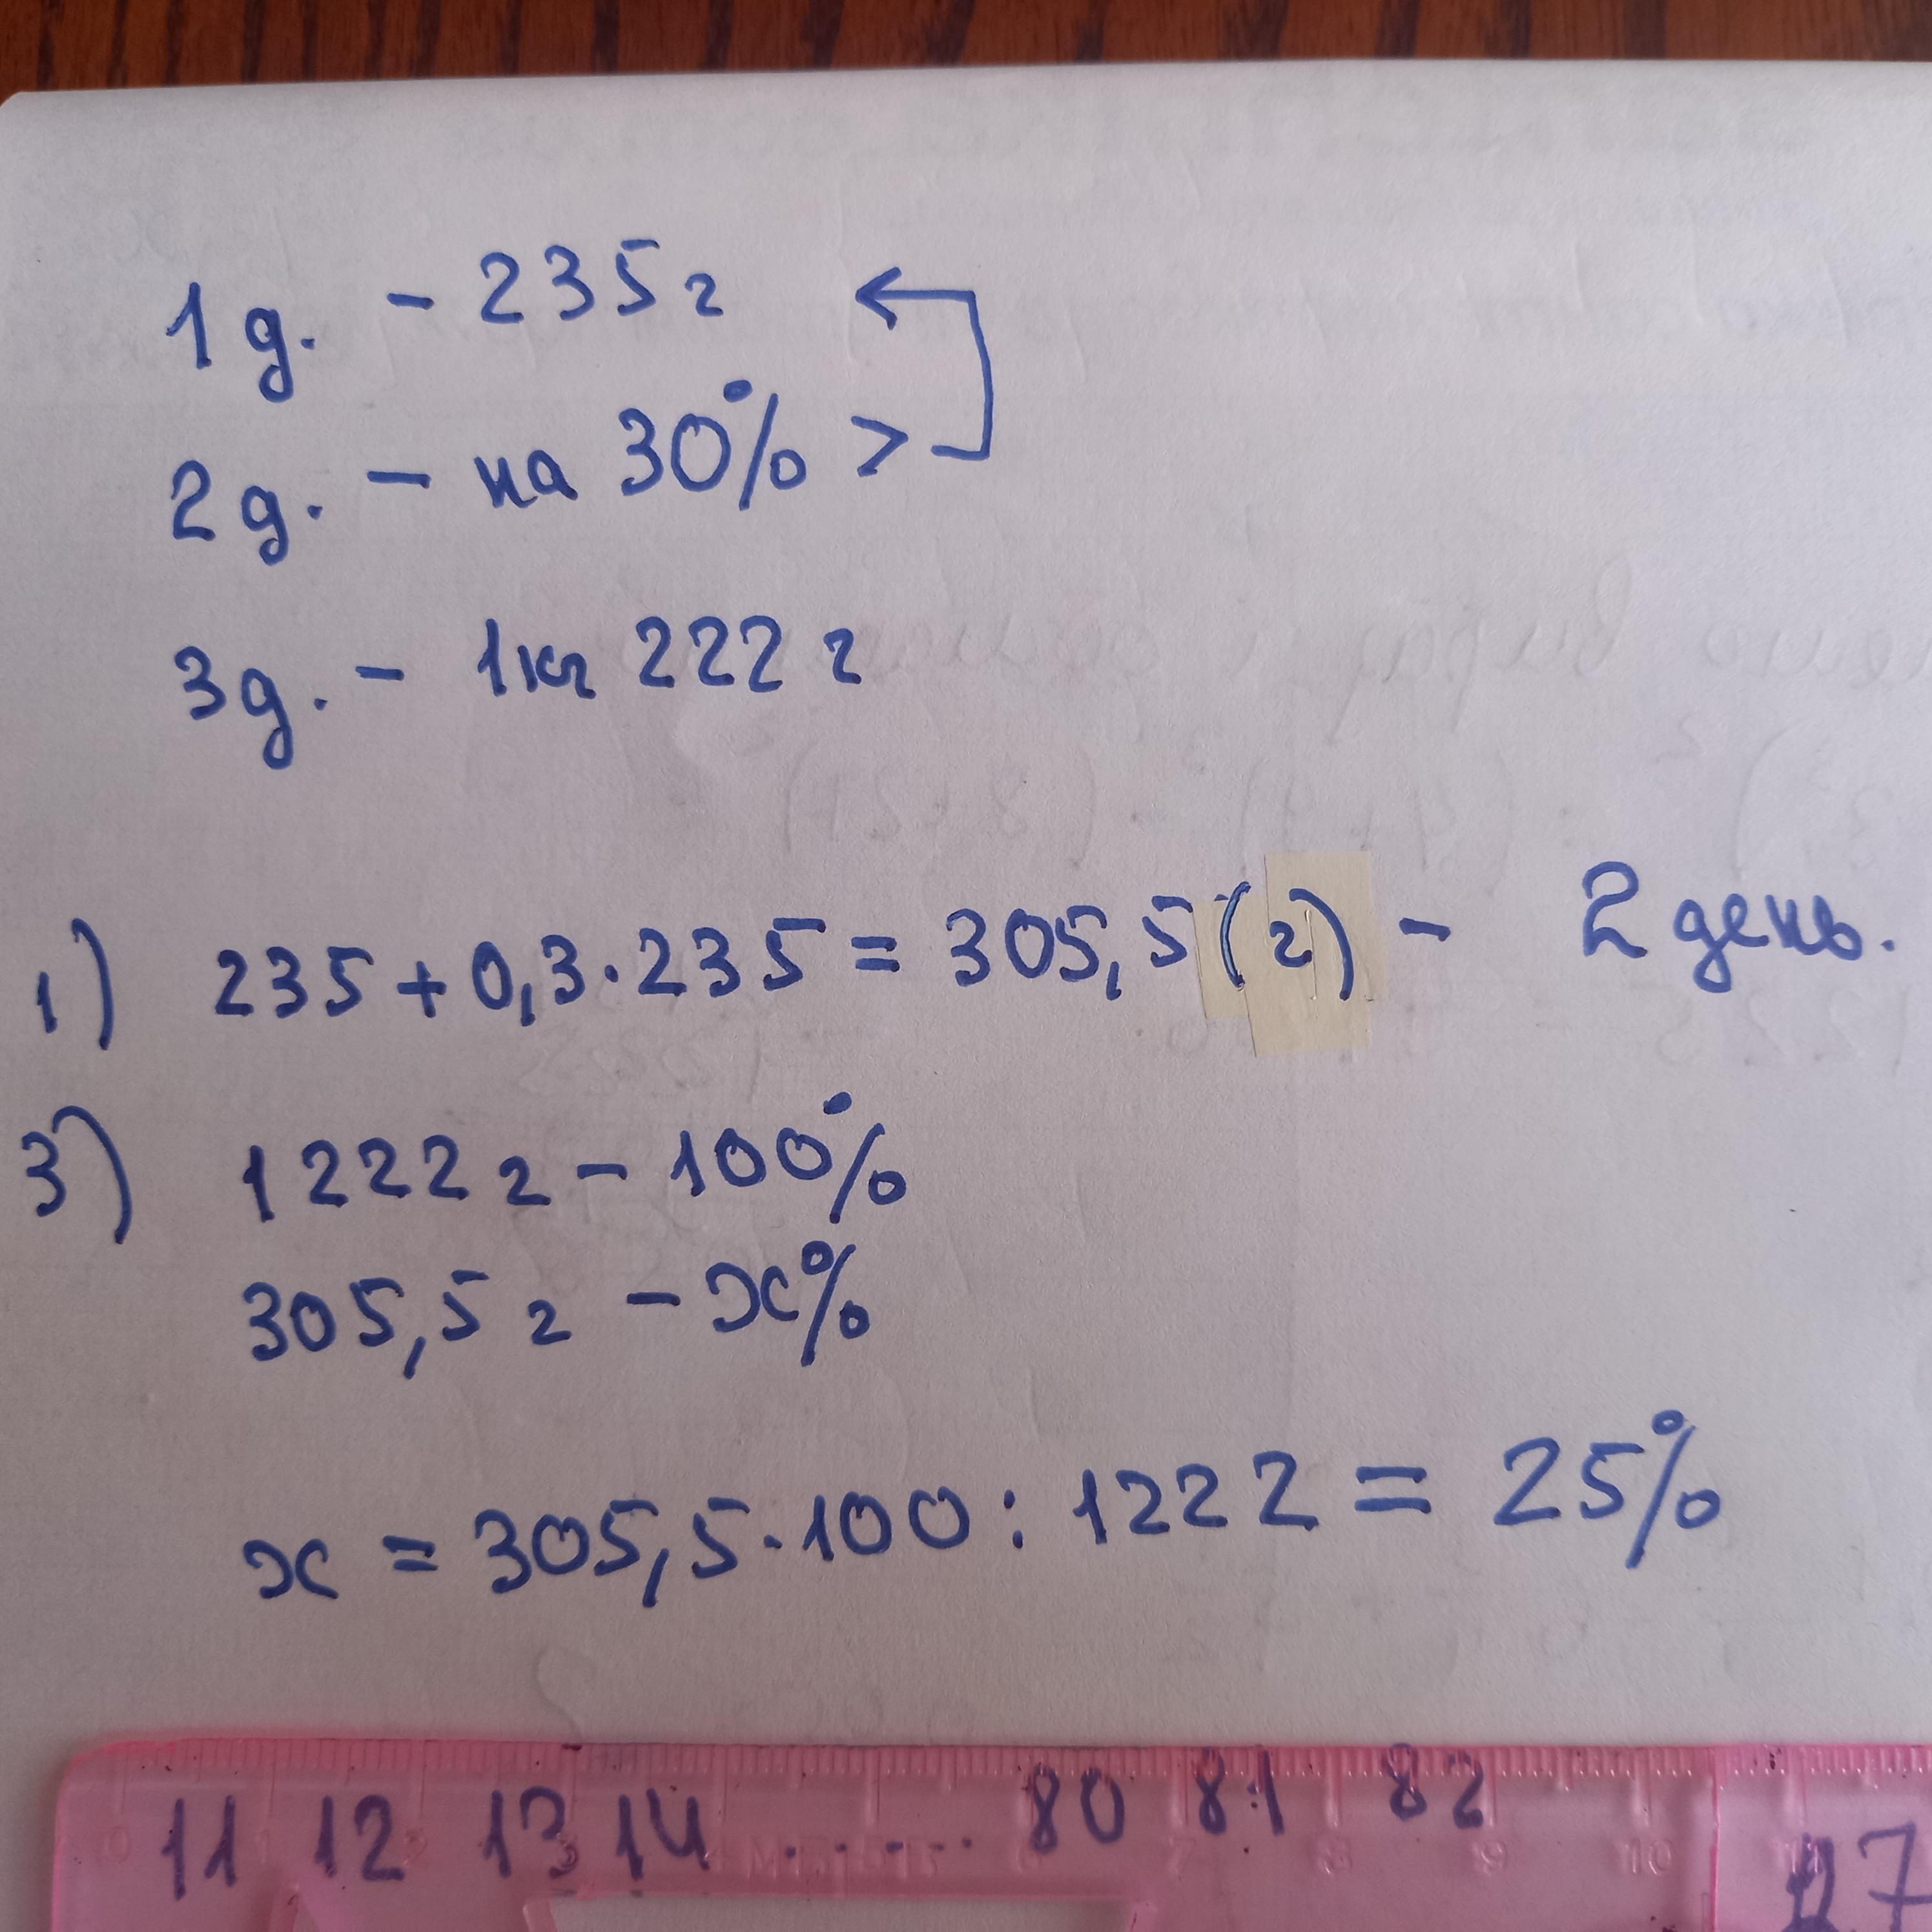 1д. - 235г
2д. - на 30% >
3д. - 1кг 222г
1) 235 + 0,3·235 = 305,5(г) - 2 день.
3) 1222г - 100%
305,5г - x%
x = 305,5·100 : 1222 = 25%
11 12 13 14 ...... 80 81 82